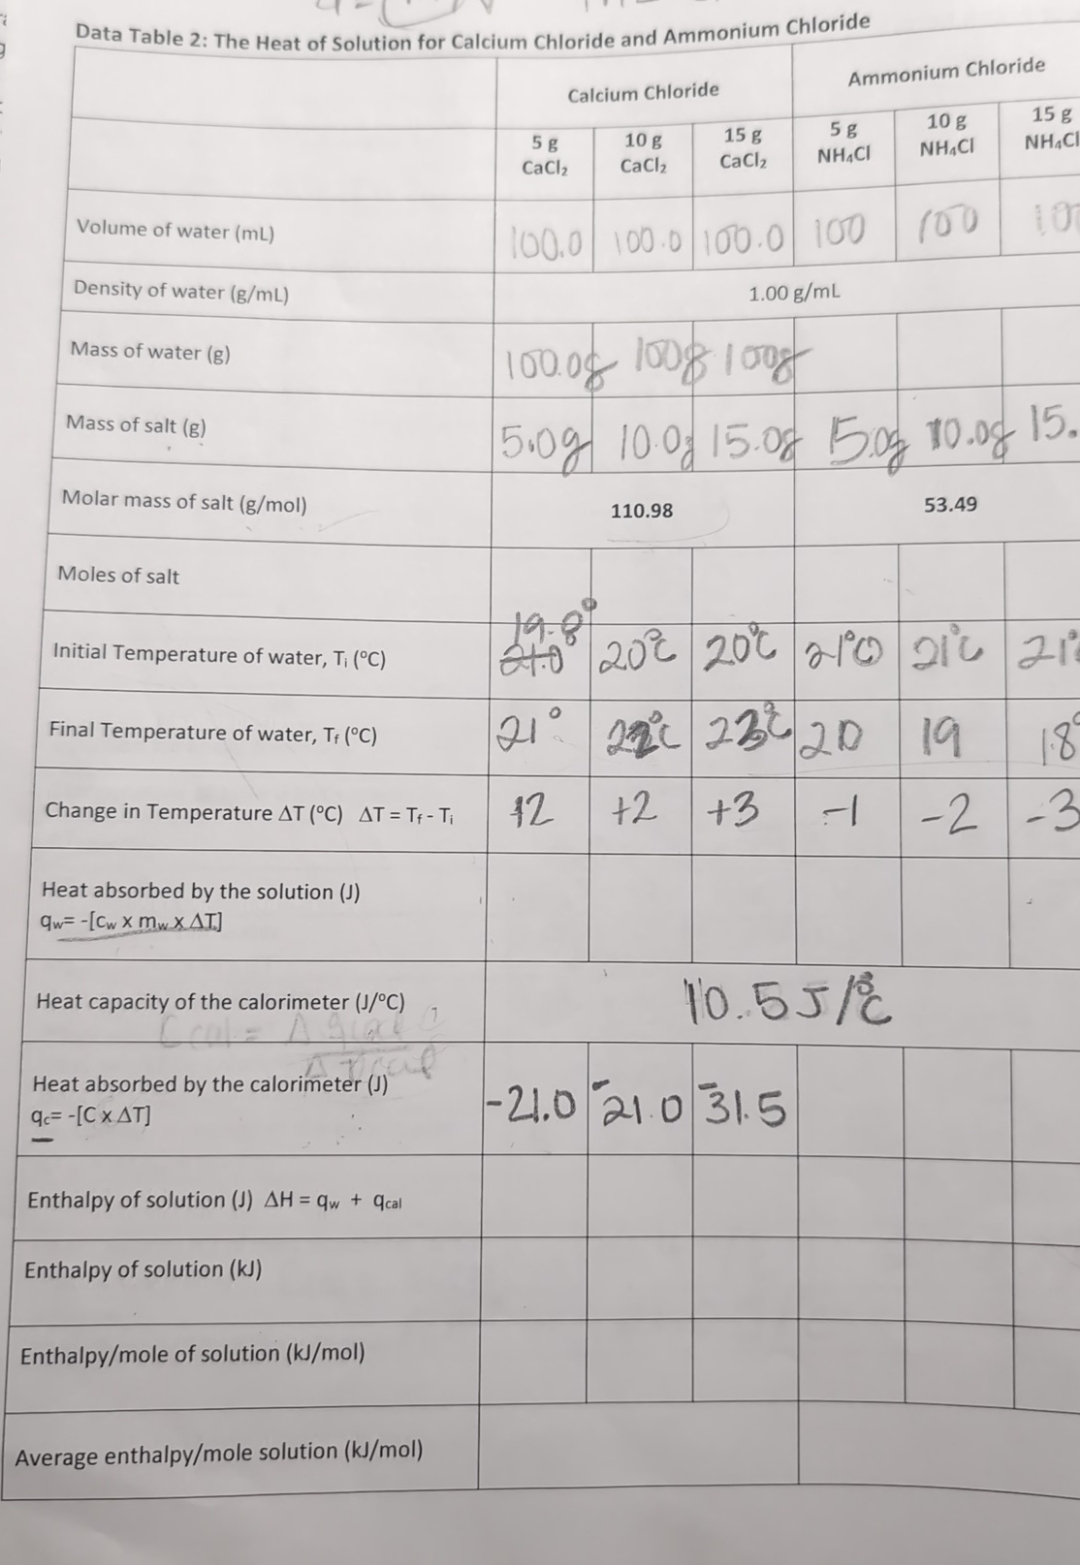 Data Table 2: The Heat of Solution for Calcium Chloride and Ammonium Chloride
Calcium Chloride Ammonium Chloride
5 g CaCl₂ 10 g CaCl₂ 15 g CaCl₂ 5 g NH₄Cl 10 g NH₄Cl 15 g NH₄Cl
Volume of water (mL) 100.0 100.0 100.0 100 100
Density of water (g/mL) 1.00 g/mL
Mass of water (g) 100.0g 100g 100g
Mass of salt (g) 5.0g 10.0g 15.0g 5.0g 10.0g 15.
Molar mass of salt (g/mol) 110.98 53.49
Moles of salt
19.8°
Initial Temperature of water, Tᵢ (°C) 21.0° 20°C 20°C 21°C 21°C 21°
Final Temperature of water, T_f (°C) 21° 22°C 23°C 20 19 18°
Change in Temperature ΔT (°C) ΔT = T_f - Tᵢ +2 +2 +3 -1 -2 -3
Heat absorbed by the solution (J)
q_w= -[c_w x m_w x ΔT]
Heat capacity of the calorimeter (J/°C) 10.5 J/°C
Ccal = Δqcal
ΔTcal
Heat absorbed by the calorimeter (J)
q_c= -[C x ΔT] -21.0 -21.0 -31.5
Enthalpy of solution (J) ΔH = q_w + q_cal
Enthalpy of solution (kJ)
Enthalpy/mole of solution (kJ/mol)
Average enthalpy/mole solution (kJ/mol)